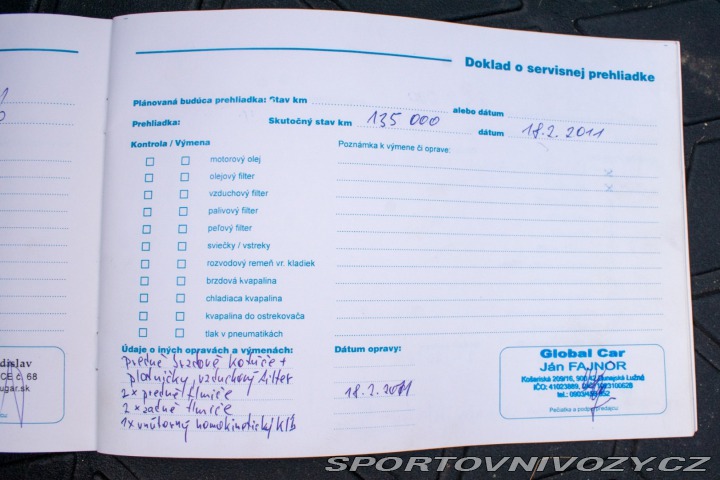 Doklad o servisnej prehliadke
Plánovaná budúca prehliadka: Stav km alebo dátum
Prehliadka: Skutočný stav km 135 000 dátum 18.2.2011
Kontrola / Výmena Poznámka k výmene či oprave:
motorový olej
olejový filter
vzduchový filter
palivový filter
peľový filter
sviečky / vstreky
rozvodový remeň vr. kladiek
brzdová kvapalina
chladiaca kvapalina
kvapalina do ostrekovača
tlak v pneumatikách
Údaje o iných opravách a výmenách: Dátum opravy:
predné brzdové kotúče +
platničky, vzduchový filter
2x predné tlmiče
2x zadné tlmiče
1x vnútorný homokinetický kĺb
18.2.2011
Global Car
Ján FAJNOR
Košariská 209/16, 900 42 Dunajská Lužná
IČO: 41023889,
tel.:
Pečiatka a podpis predajcu
dislav
CE č. 68
ugar.sk
SPORTOVNIVOZY.CZ